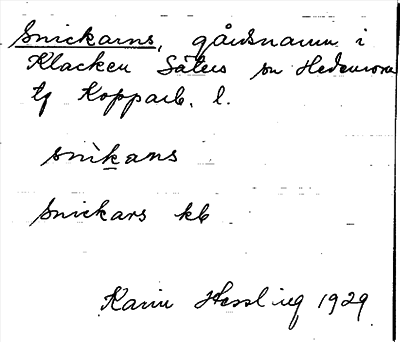 Snickarns, gårdsnamn i
Klacken Säters sn Hedemora
tg Kopparb. l.
snìkans
Snickars kb
Karin Hessling 1929